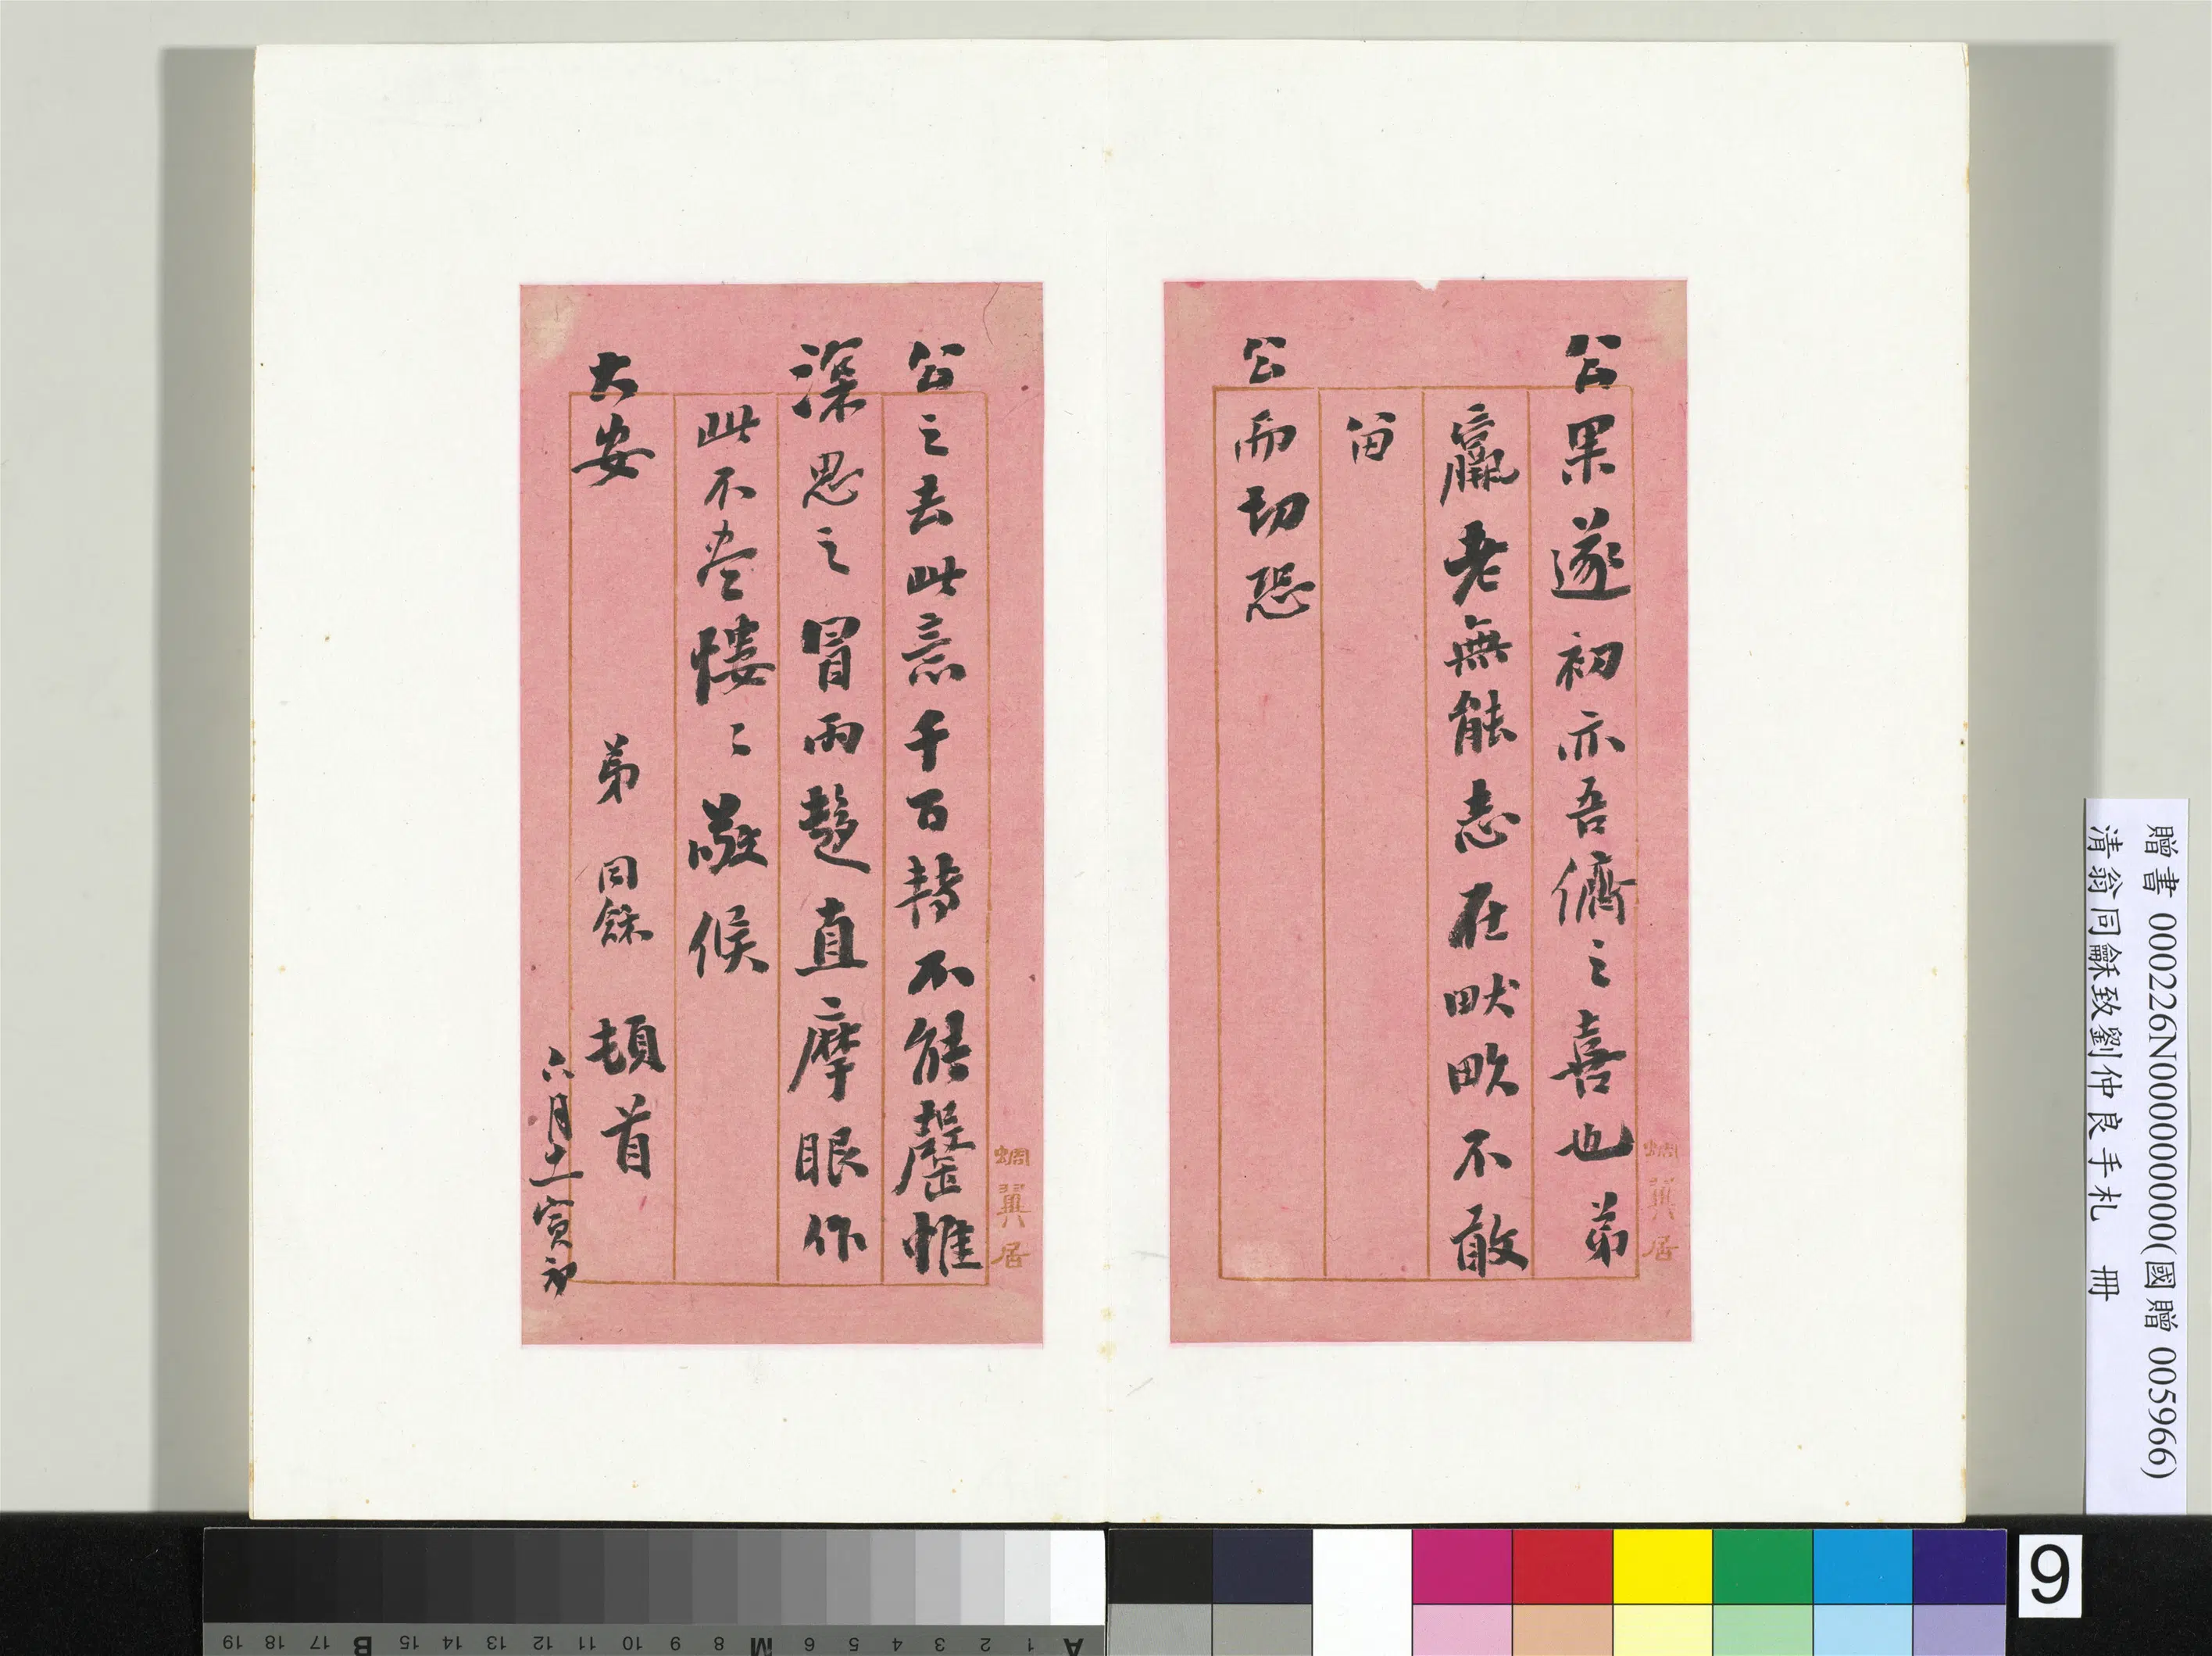 公果遂初亦吾儕之喜也弟
羸老無能志在畎畝不敢
留
公而切恐
蜩翼居
公之去此意千百替不能罄惟
深思之冒雨趨直摩眼作
此不盡慺〻敬候
大安
弟 同龢 頓首
六月十一寅初
蜩翼居
贈書 000226N000000000(國贈 005966)
清翁同龢致劉仲良手札 冊
9
A 1 2 3 4 5 6 M 8 9 10 11 12 13 14 15 B 17 18 19